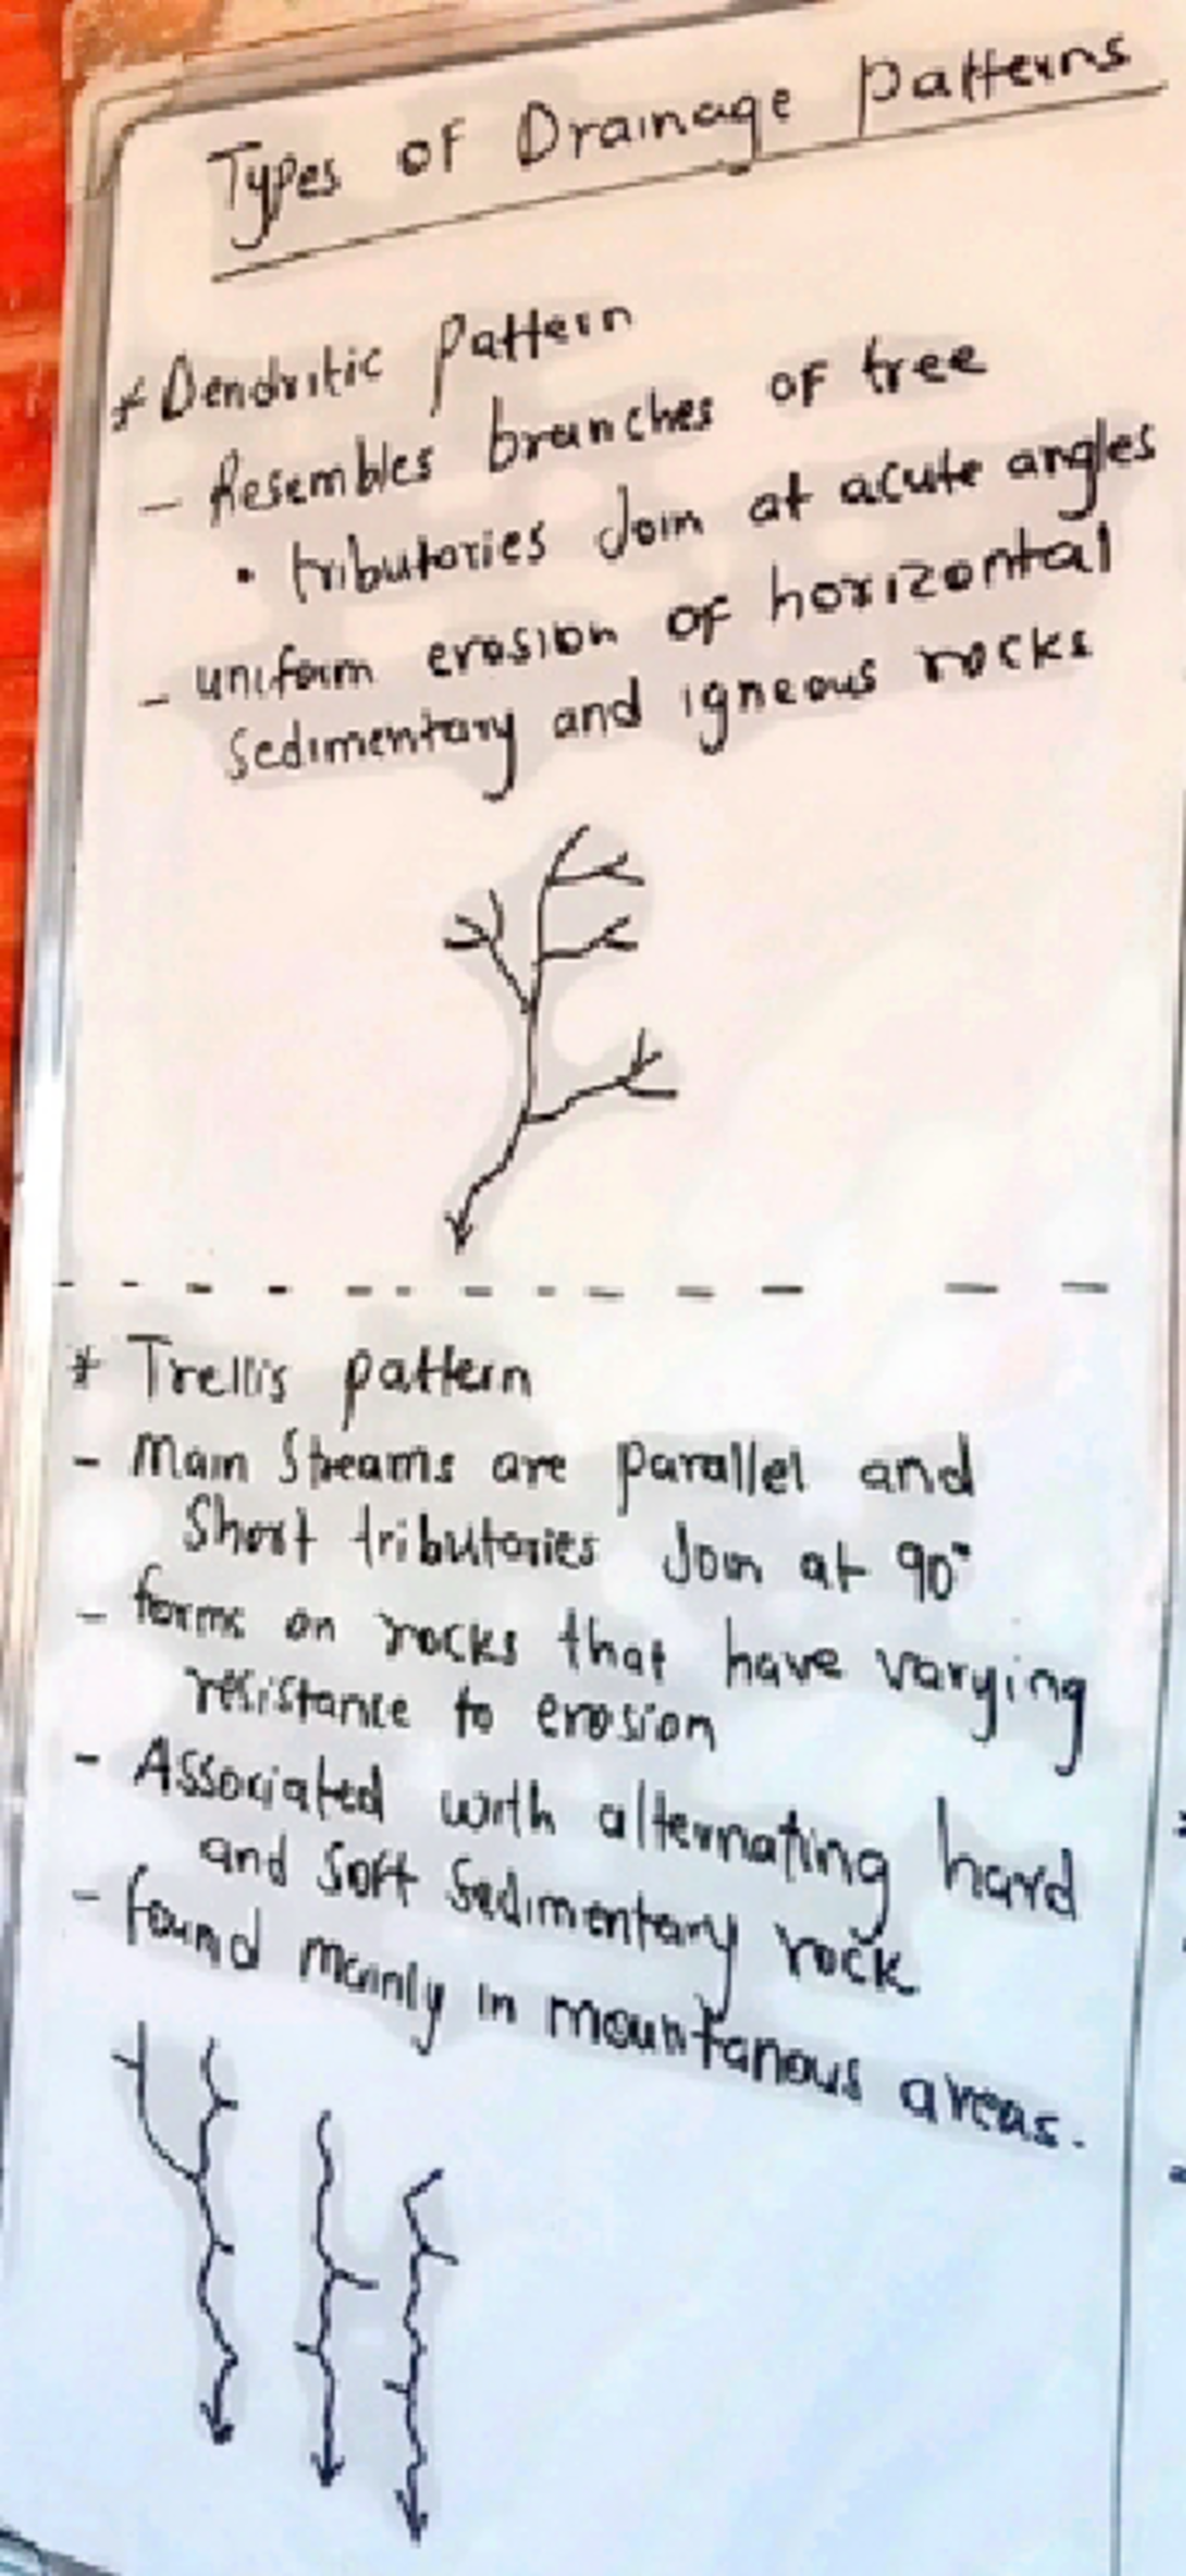 Types of Drainage patterns
* Dendritic pattern
- Resembles branches of tree
• tributories Join at acute angles
- uniform erosion of horizontal
Sedimentary and igneous rocks
* Trellis pattern
- Main Streams are parallel and
Short tributories Join at 90°
- forms on rocks that have varying
resistance to erosion
- Associated with alternating hard
and soft Sedimentary rock
- found mainly in mountanous areas.